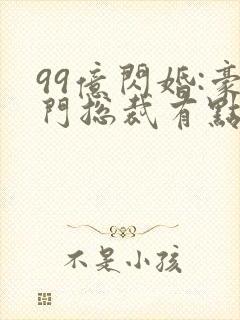 99億閃婚:豪
門總裁有點
不是小孩